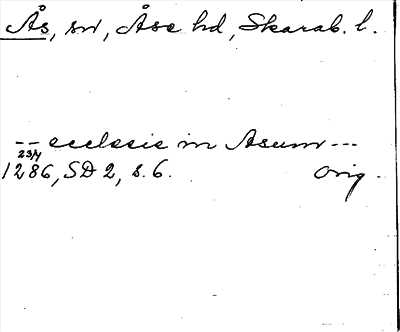 Ås, sn, Åse hd, Skarab. l.
-- ecclesie in Asum ---
23/4
1286, SD 2, s. 6. orig.